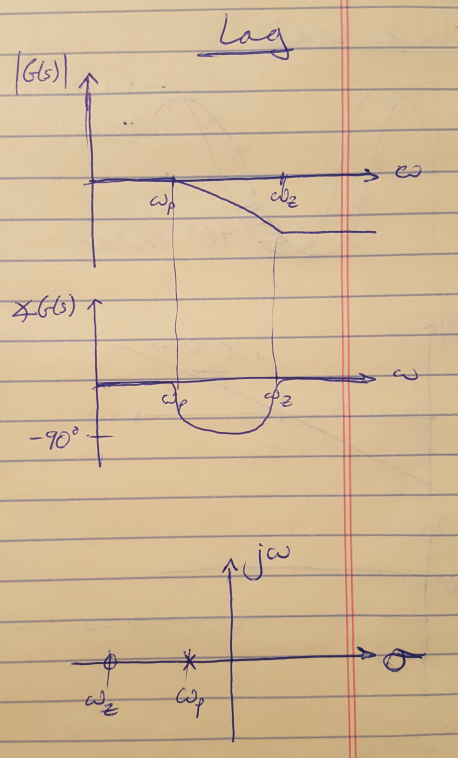 Lag
|G(s)|
ω
ωp ωz
∡G(s)
ω
ωp ωz
-90°
jω
σ
ωz ωp